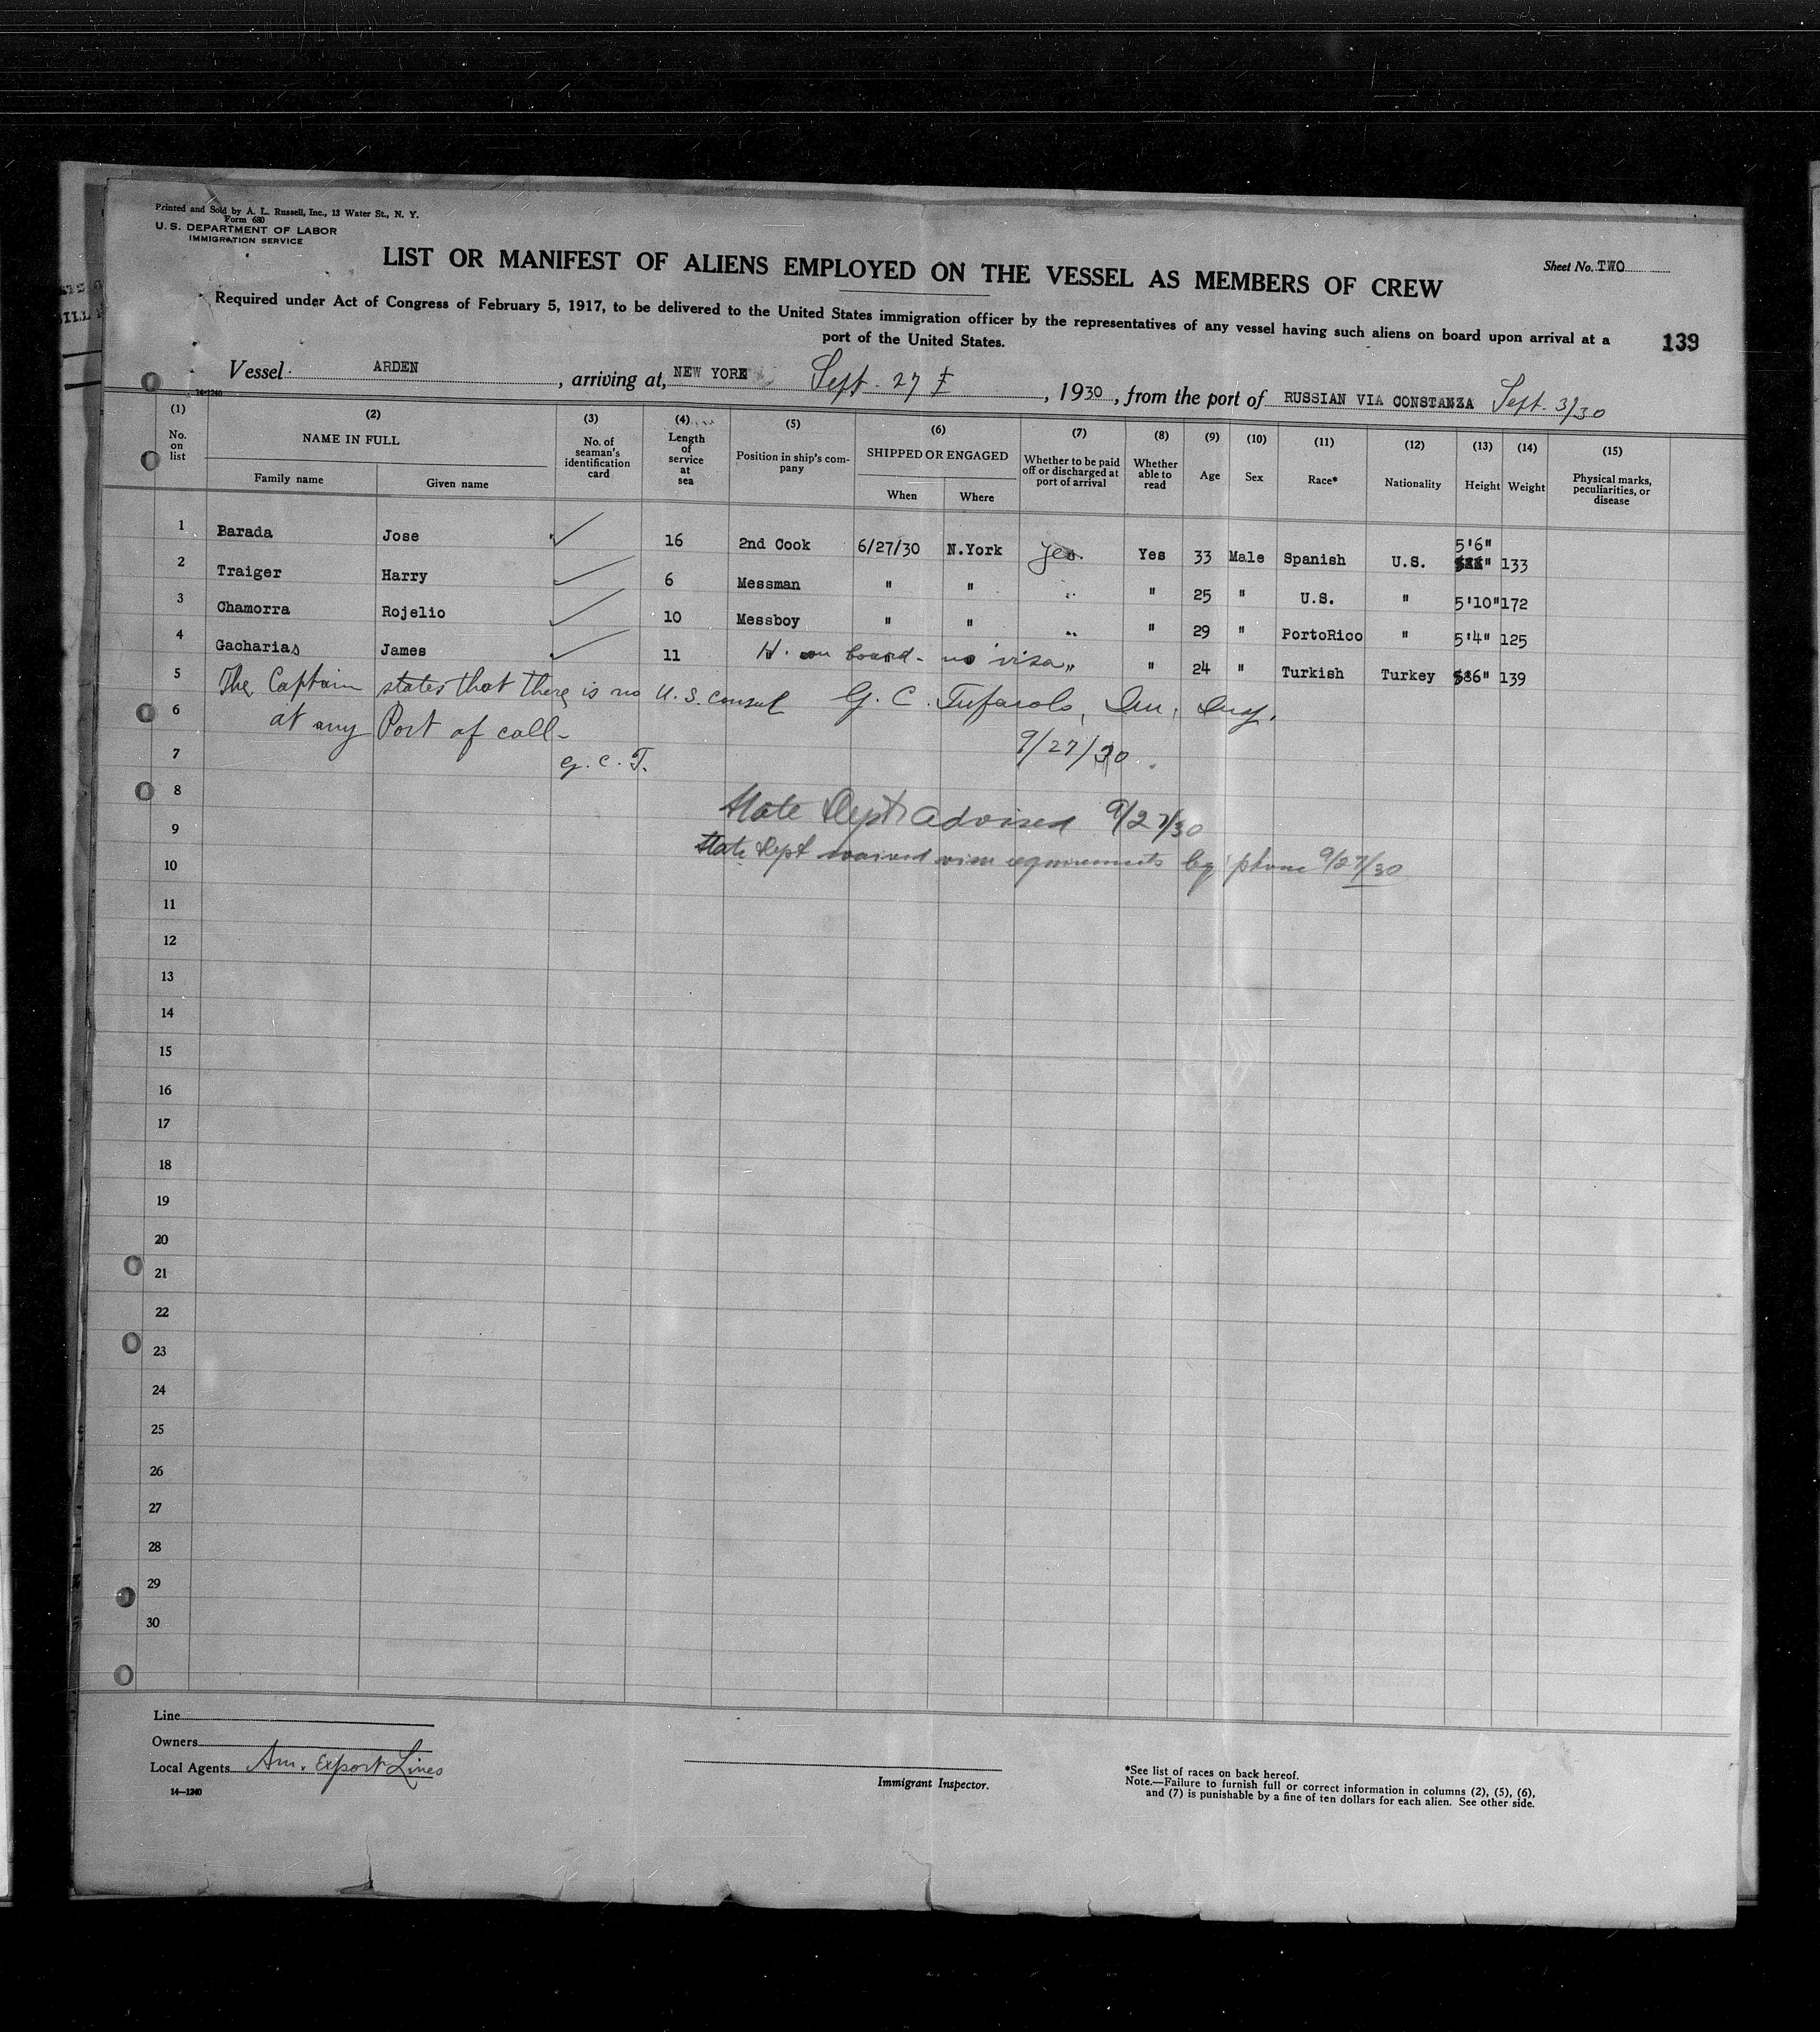 Printed and Sold by A. L. Russell, Inc., 13 Water St., N. Y.
Form 680
U. S. DEPARTMENT OF LABOR
IMMIGRATION SERVICE
LIST OR MANIFEST OF ALIENS EMPLOYED ON THE VESSEL AS MEMBERS OF CREW
Sheet No. TWO
Required under Act of Congress of February 5, 1917, to be delivered to the United States immigration officer by the representatives of any vessel having such aliens on board upon arrival at a
port of the United States.
139
Vessel ARDEN, arriving at, NEW YORK Sept. 27, 1930, from the port of RUSSIAN VIA CONSTANZA Sept. 3/30
14-1240
(1) (2) (3) (4) (5) (6) (7) (8) (9) (10) (11) (12) (13) (14) (15)
No. on list NAME IN FULL No. of seaman's identification card Length of service at sea Position in ship's company SHIPPED OR ENGAGED Whether to be paid off or discharged at port of arrival Whether able to read Age Sex Race* Nationality Height Weight Physical marks, peculiarities, or disease
Family name Given name When Where
1 Barada Jose ✓ 16 2nd Cook 6/27/30 N.York yes Yes 33 Male Spanish U.S. 5'6" 133
2 Traiger Harry ✓ 6 Messman " " " " 25 " U.S. " 5'10" 172
3 Chamorra Rojelio ✓ 10 Messboy " " " " 29 " PortoRico " 5'4" 125
4 Gacharias James ✓ 11 H. on board - no visa " " 24 " Turkish Turkey 5'6" 139
5 The Captain states that there is no U.S. consul G. C. Tufarolo, Im. Insp.
6 at any Port of call -
7 G. C. T. 9/27/30
8 State Dept advised 9/27/30
9 State Dept waived visa requirements by phone 9/27/30
10
11
12
13
14
15
16
17
18
19
20
21
22
23
24
25
26
27
28
29
30
Line
Owners
Local Agents Am. Export Lines
14-1240
Immigrant Inspector.
*See list of races on back hereof.
Note.—Failure to furnish full or correct information in columns (2), (5), (6),
and (7) is punishable by a fine of ten dollars for each alien. See other side.